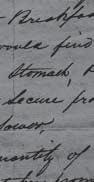 Breakfas
would find
Stomach,
Secure fro
power,
uantity of